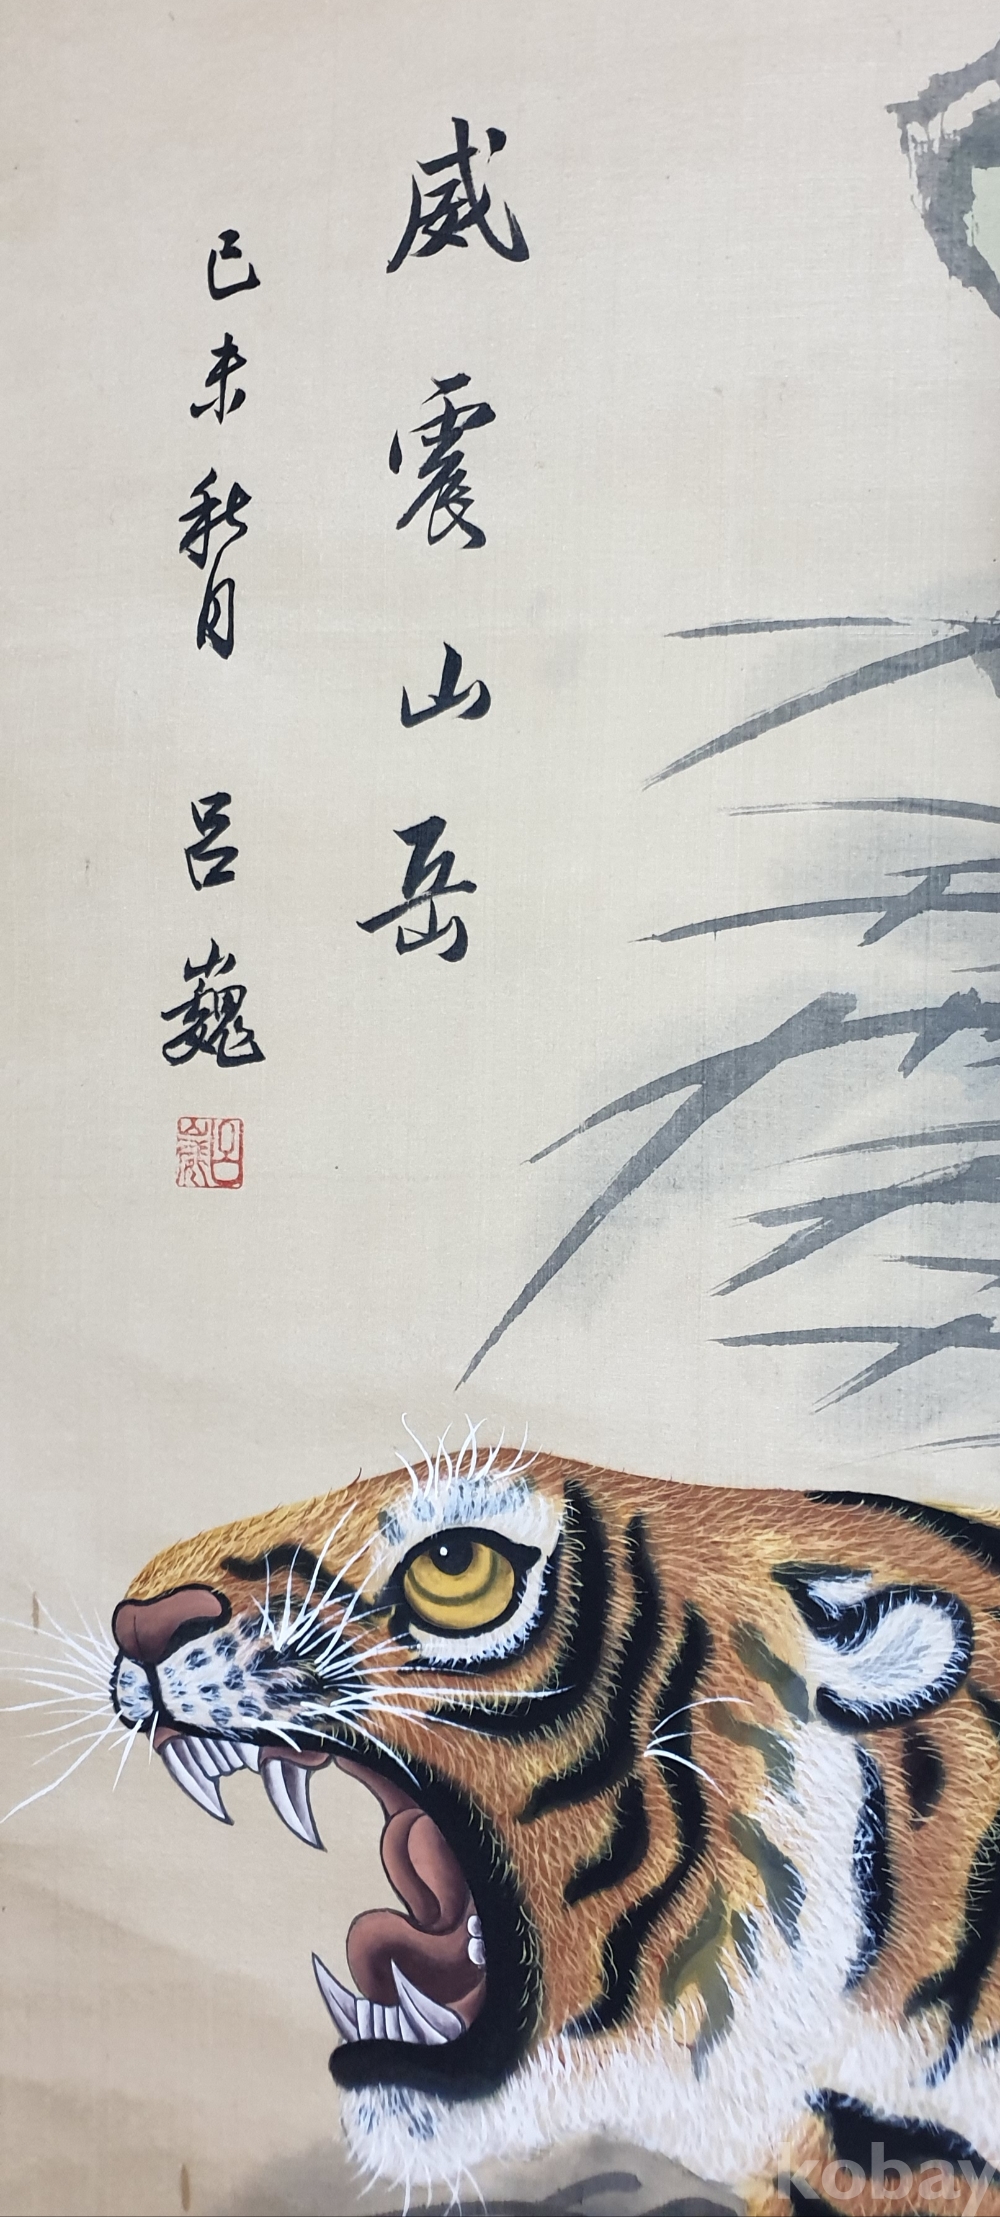 威震山岳
己未秋月 呂巍
kobay